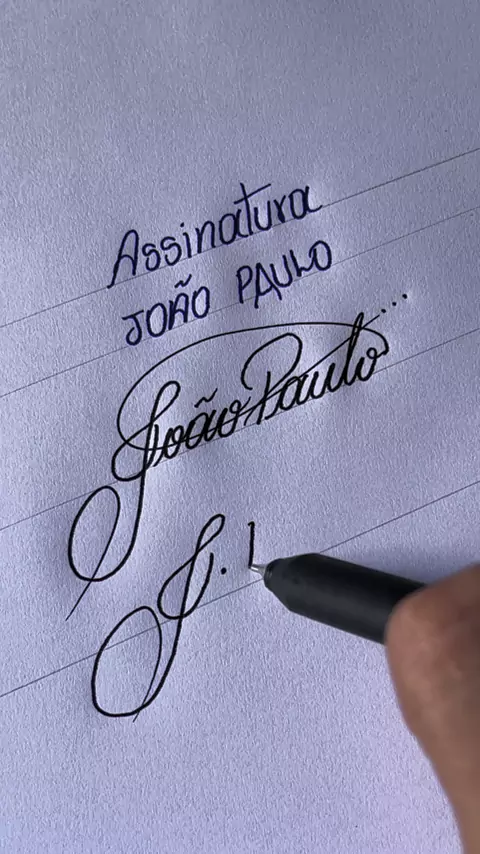 Assinatura
JOÃO PAULO
João Paulo...
J. l